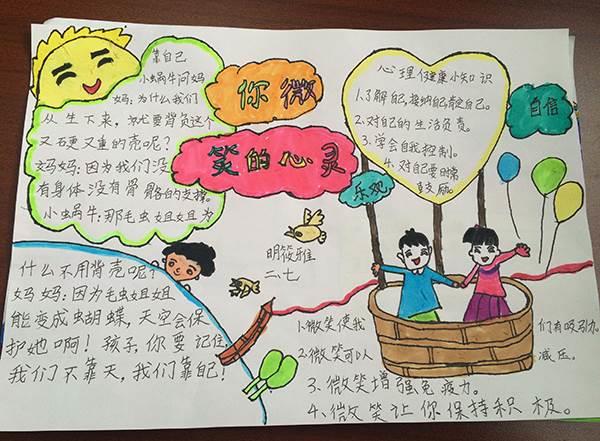 靠自己
小蜗牛问妈
妈:为什么我们
从生下来,就要背负这个
又硬又重的壳呢?
妈妈:因为我们没
有身体没有骨骼的支撑。
小蜗牛:那毛虫姐姐为
什么不用背壳呢?
妈妈:因为毛虫姐姐
能变成蝴蝶,天空会保
护她啊!孩子,你要记住,
我们不靠天,我们靠自己!
你微
笑的心灵
明筱雅
二、七
心理健康小知识
1.了解自己,接纳自己肯定自己。
2.对自己的生活负责。
3.学会自我控制。
4.对自己要时常
鼓励。
自信
乐观
1.微笑使我们有吸引力。
2.微笑可以减压。
3.微笑增强免疫力。
4.微笑让你保持积极。